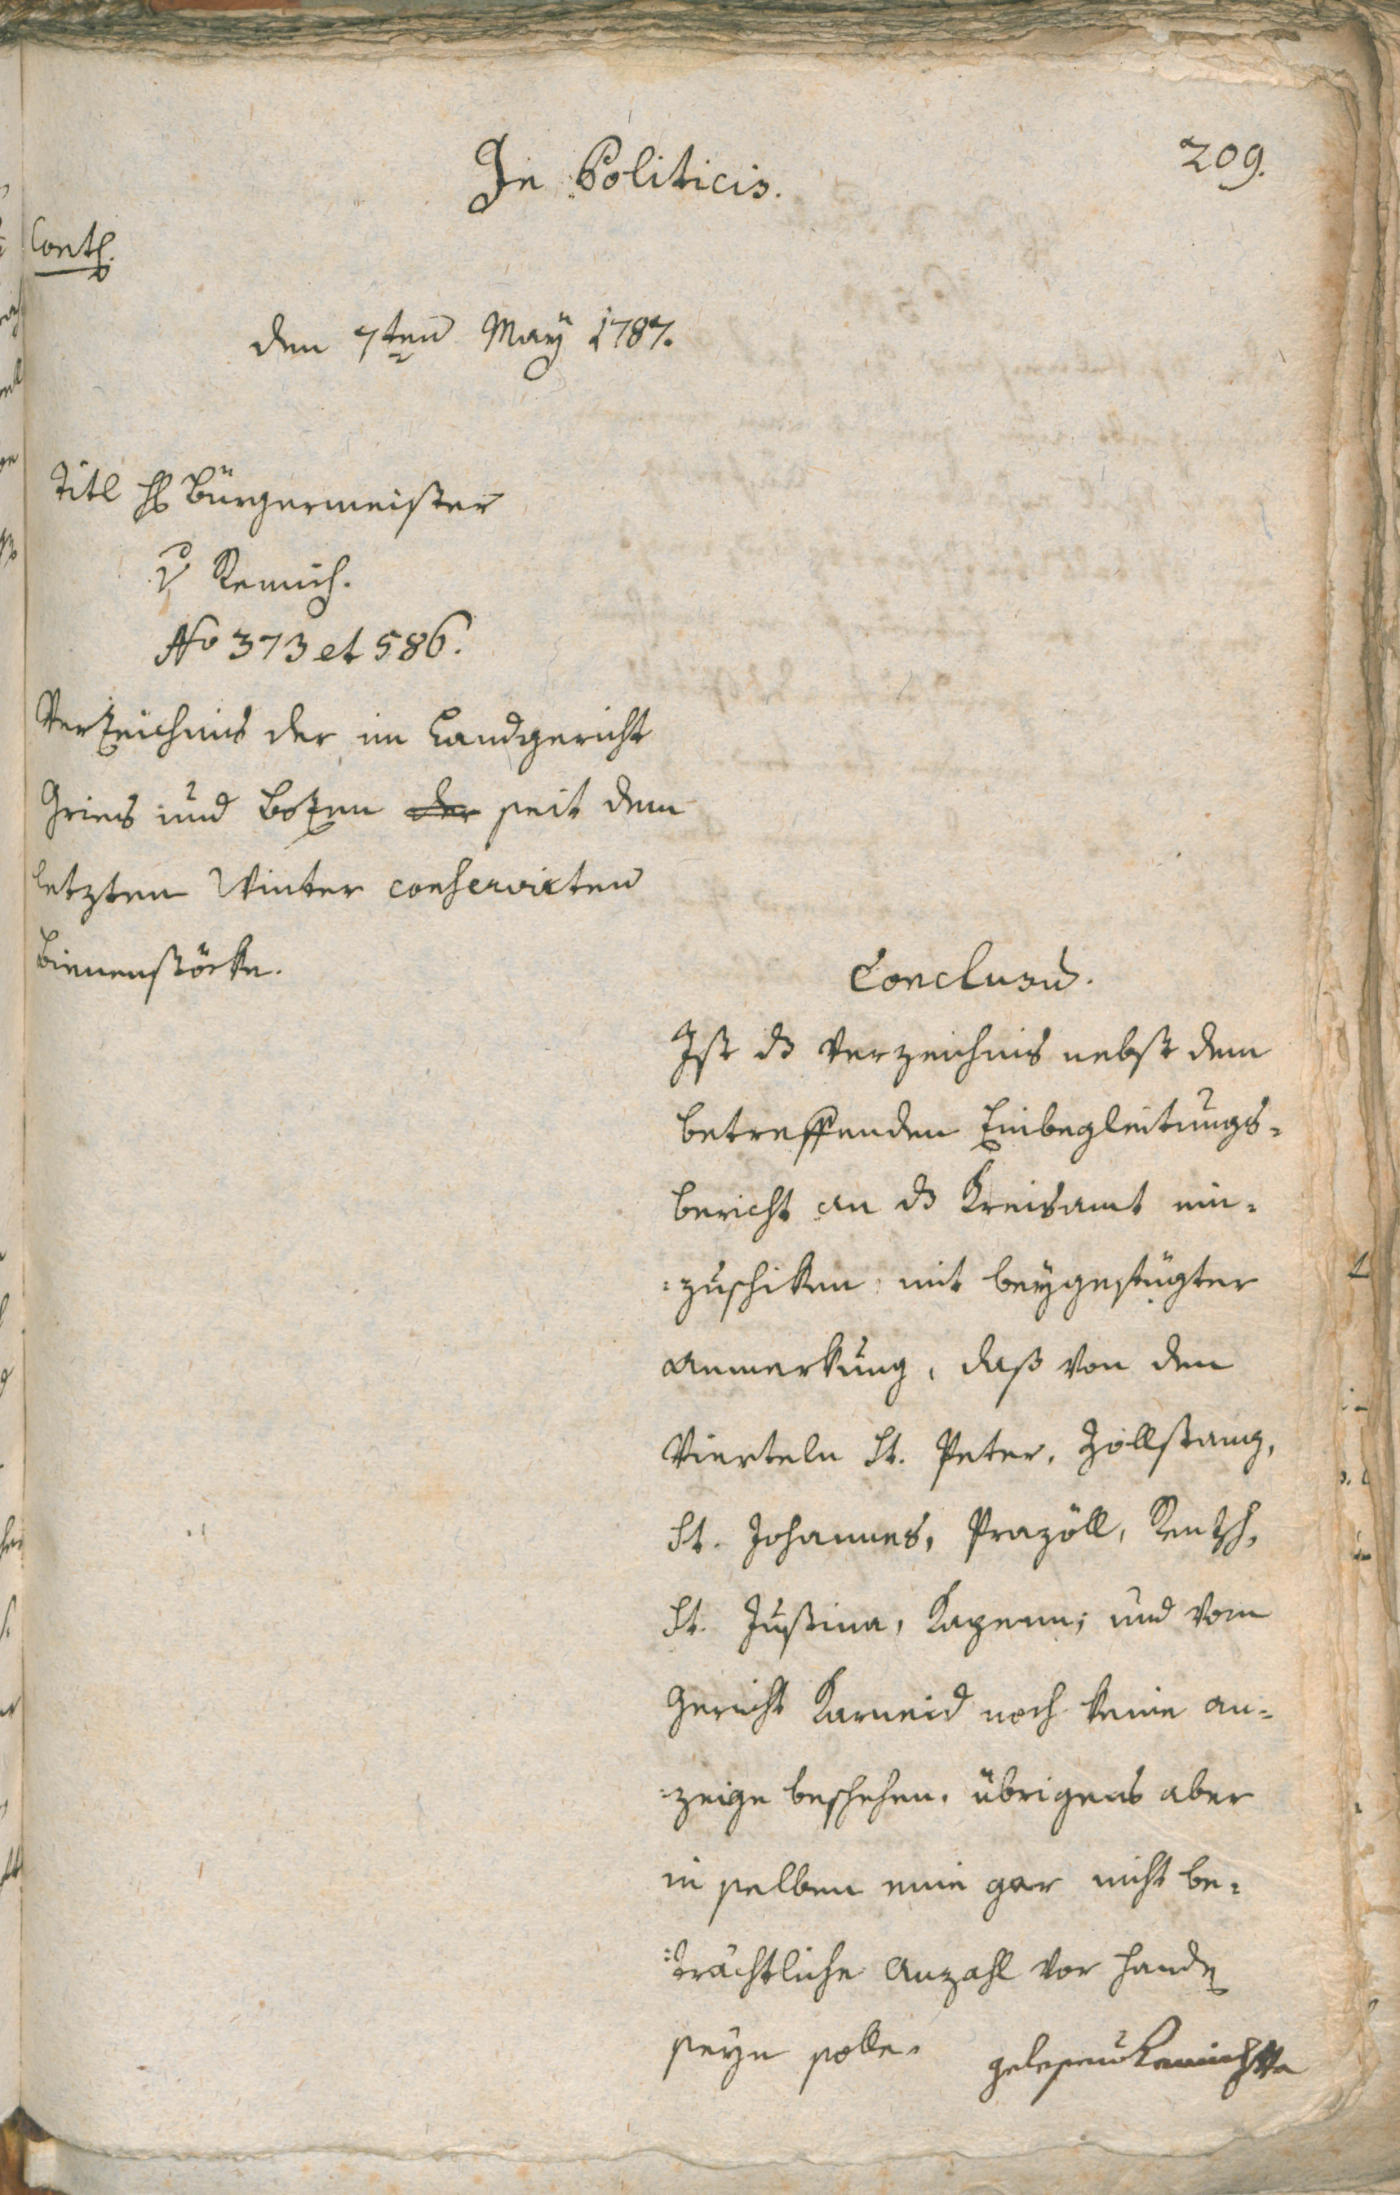 In Politicis.
209.
Cont.
den 7ten Maÿ 1787.
Titl H Bürgermeister
v Remich.
No 373 et 586.
Verzeichnis der im Landgericht
Gries und Bozen der seit dem
letzten Winter conservirten
Bienenstöcke.
Conclusum.
Ist ds Verzeichnis nebst dem
betreffenden Einbegleitungs-
bericht an ds Kreisamt ein-
zuschiken mit beygefügter
Anmerkung, daß von den
Vierteln St. Peter, Zollstang,
St. Johannes, Prazöll, Rentsch,
St. Justina, Kapenn; und vom
Gericht Karneid noch keine An-
zeige beschehen, übrigens aber
in selben eine gar nicht be-
trächtliche Anzahl vor handen
seyn solle. gelesen Remich